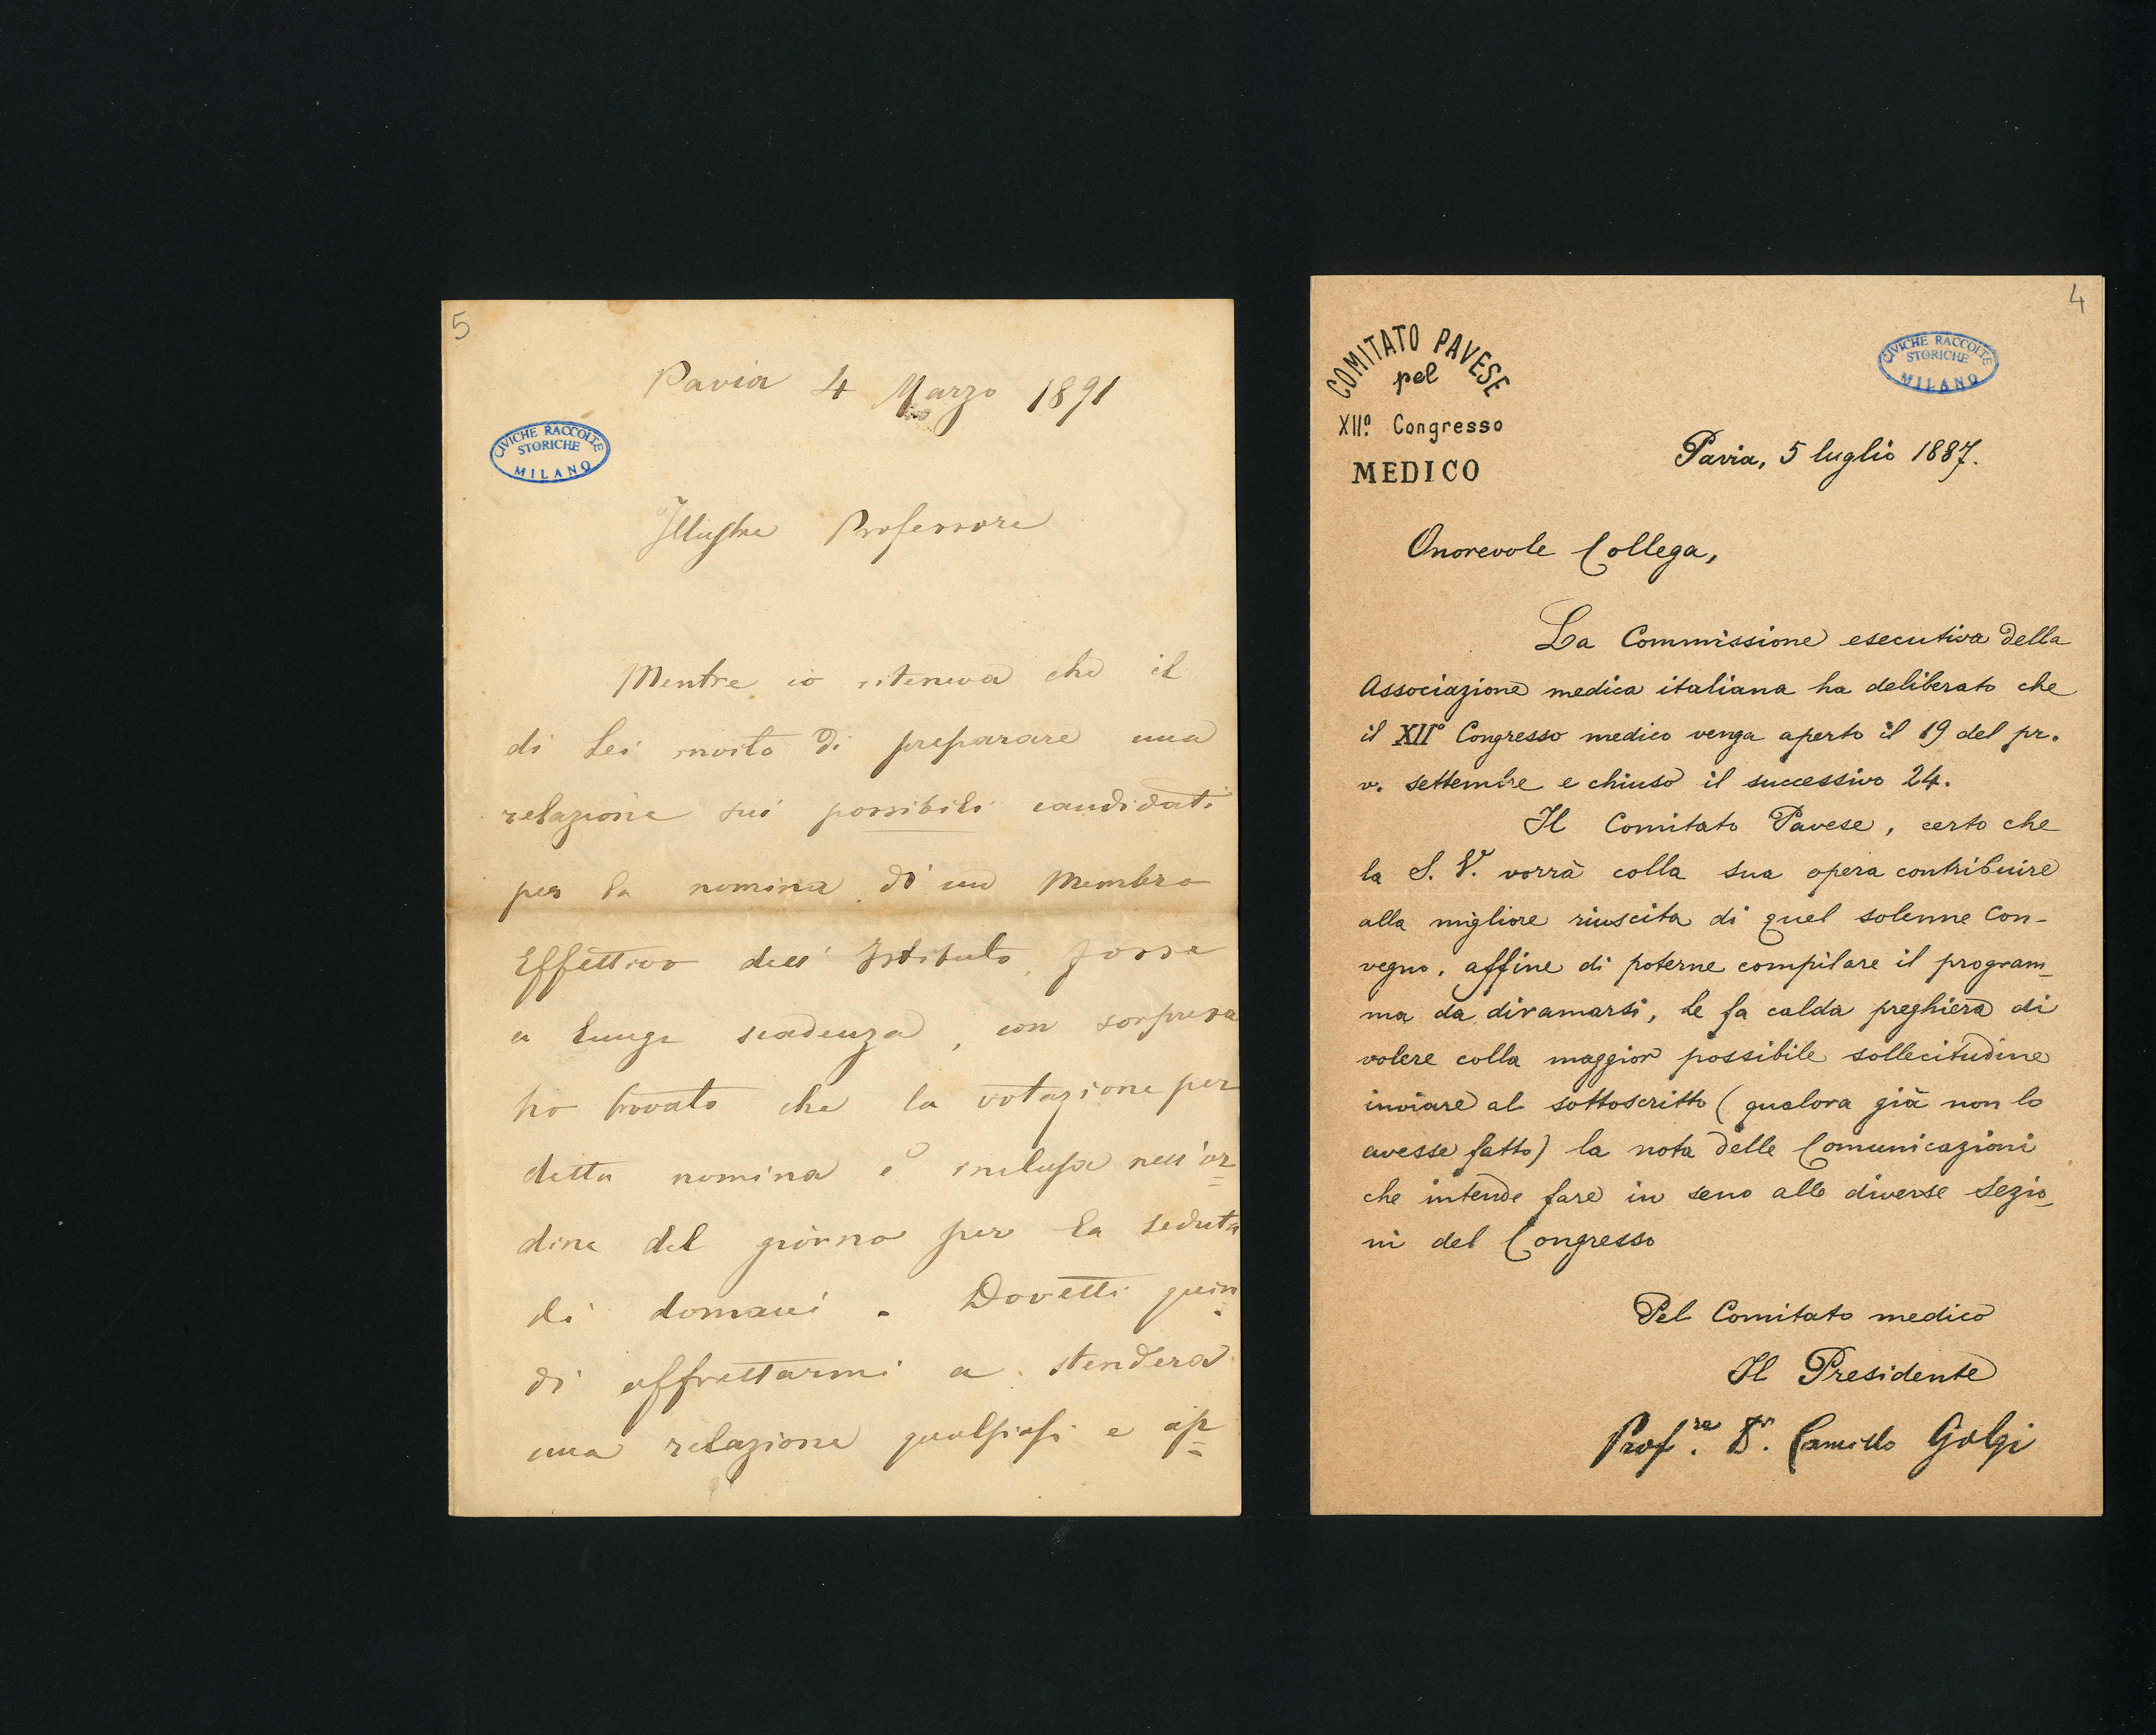 5
Pavia 4 Marzo 1891
CIVICHE RACCOLTE
STORICHE
MILANO
Illustre Professore
Mentre io riteneva che il
di Lei invito di preparare una
relazione sui possibili candidati
per la nomina di un Membro
Effettivo dell' Istituto fosse
a lunga scadenza, con sorpresa
ho trovato che la votazione per
detta nomina è inclusa nell'or=
dine del giorno per la seduta
di domani. Dovetti quin
di affrettarmi a stendere
una relazione qualsiasi e ap=
4
COMITATO PAVESE
pel
XIIº. Congresso
MEDICO
CIVICHE RACCOLTE
STORICHE
MILANO
Pavia, 5 luglio 1887.
Onorevole Collega,
La Commissione esecutiva della
Associazione medica italiana ha deliberato che
il XIIº Congresso medico venga aperto il 19 del pr.
v. settembre e chiuso il successivo 24.
Il Comitato Pavese, certo che
la S. V. vorrà colla sua opera contribuire
alla migliore riuscita di quel solenne Con-
vegno, affine di poterne compilare il program-
ma da diramarsi, Le fa calda preghiera di
volere colla maggior possibile sollecitudine
inviare al sottoscritto (qualora già non lo
avesse fatto) la nota delle Comunicazioni
che intende fare in seno alle diverse Sezio-
ni del Congresso
Pel Comitato medico
Il Presidente
Prof.re Dr. Camillo Golgi